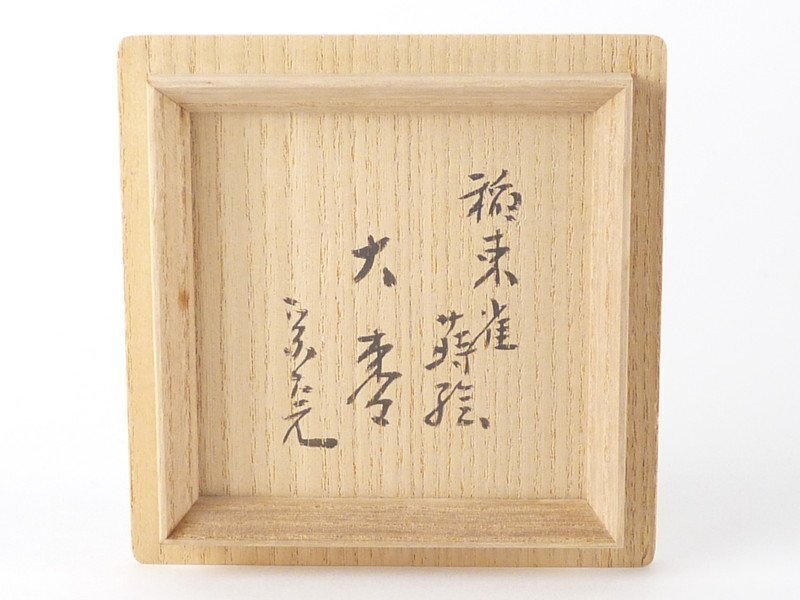 稲束雀
蒔絵
大棗